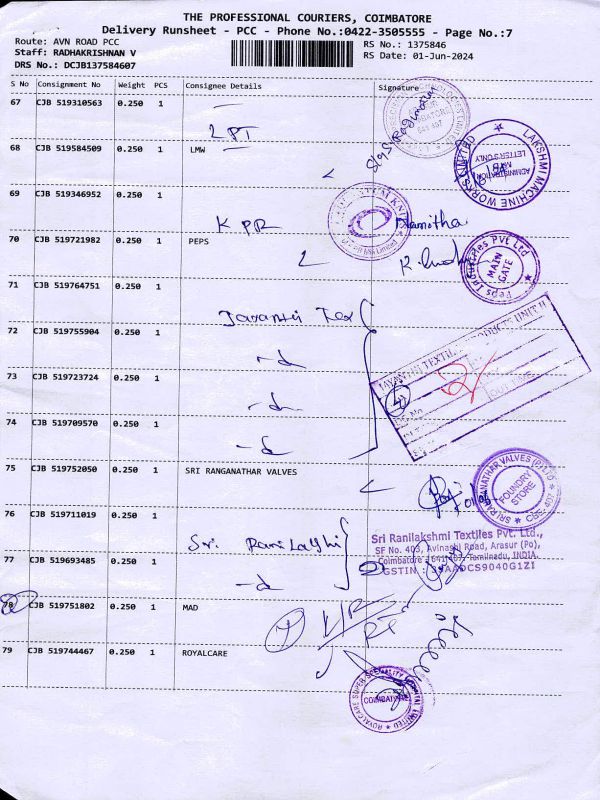 THE PROFESSIONAL COURIERS, COIMBATORE
Delivery Runsheet - PCC - Phone No.:0422-3505555 - Page No.:7
Route: AVN ROAD PCC
RS No.: 1375846
Staff: RADHAKRISHNAN V
RS Date: 01-Jun-2024
DRS No.: DCJB137584607
S No Consignment No Weight PCS Consignee Details Signature
67 CJB 519310563 0.250 1
LPT
68 CJB 519584509 0.250 1 LMW
LAKSHMI MACHINE WORKS LIMITED
ADMINISTRATION
LETTERS ONLY
69 CJB 519346952 0.250 1
KPR
Namitha
70 CJB 519721982 0.250 1 PEPS
Peps Industries Pvt Ltd
MAIN GATE
71 CJB 519764751 0.250 1
Jayanti Tex
JAYANTI TEXTILE PRODUCTS UNIT II
72 CJB 519755904 0.250 1
-d
73 CJB 519723724 0.250 1
-d
74 CJB 519709570 0.250 1
-d
75 CJB 519752050 0.250 1 SRI RANGANATHAR VALVES
SRI RANGANATHAR VALVES (P) LTD
FOUNDRY STORE
CBE-407
76 CJB 519711019 0.250 1
Sri Rani Lakshi
Sri Ranilakshmi Textiles Pvt. Ltd.,
SF No. 403, Avinashi Road, Arasur (Po),
Coimbatore - 641 407, Tamilnadu, INDIA.
77 CJB 519693485 0.250 1
-d
78 CJB 519751802 0.250 1 MAD
79 CJB 519744467 0.250 1 ROYALCARE
ROYALCARE SUPER SPECIALITY HOSPITAL LIMITED
COIMBATORE